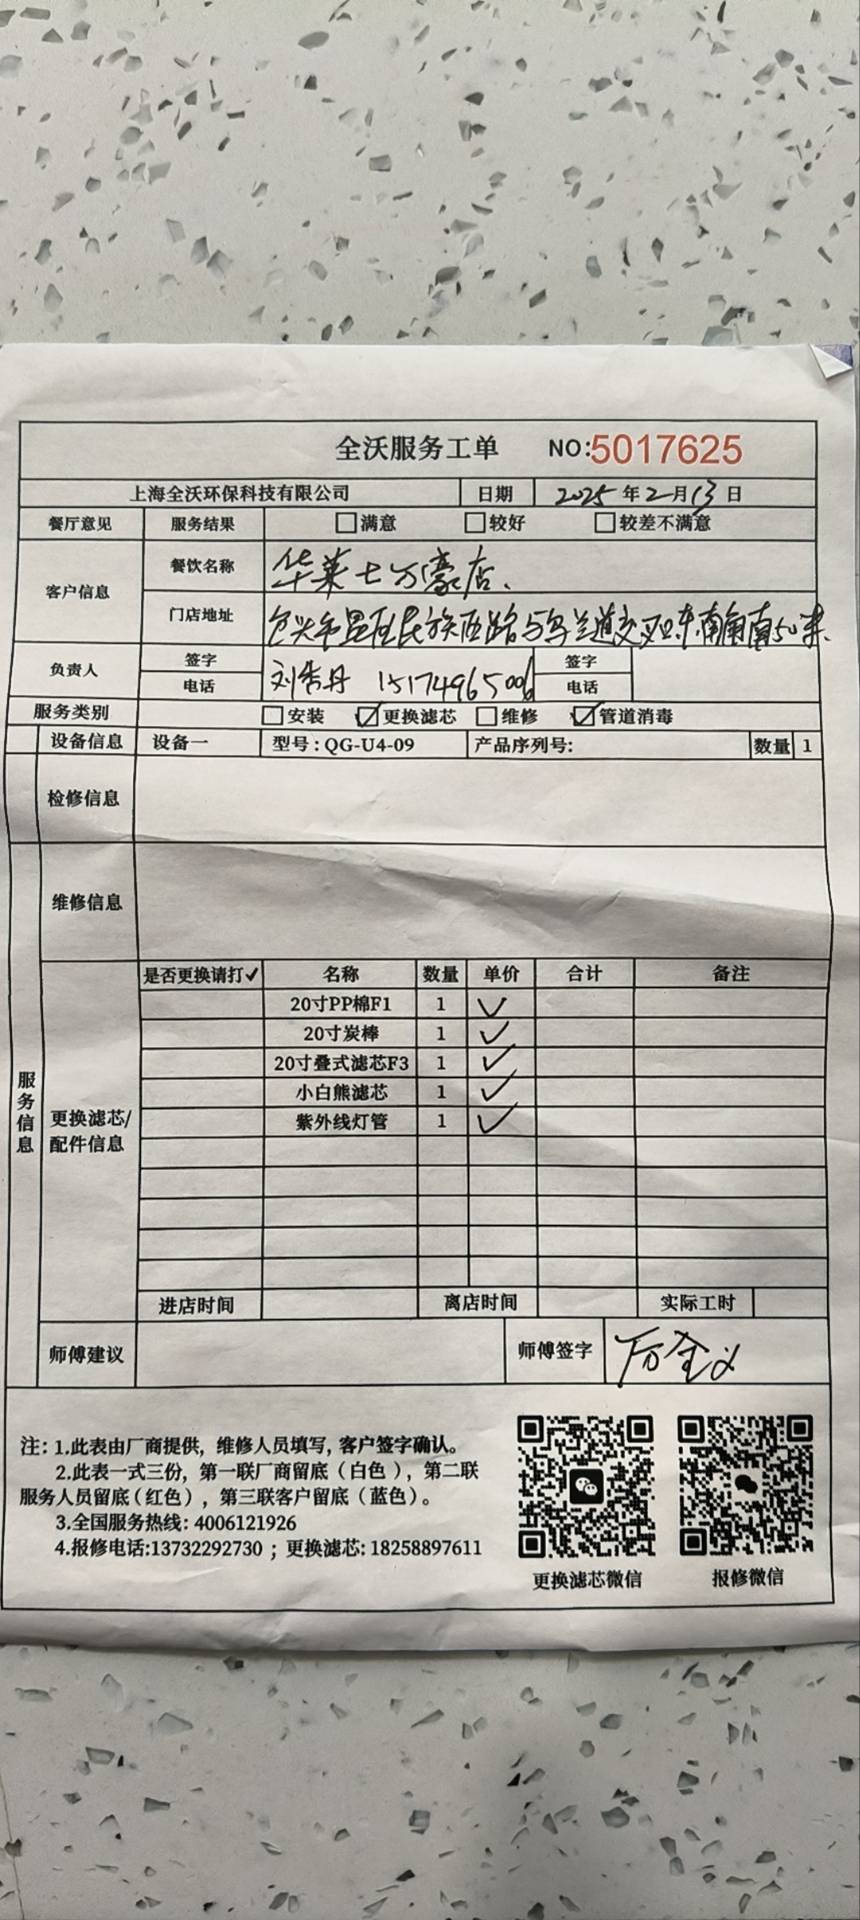 全沃服务工单 NO:5017625
上海全沃环保科技有限公司 日期 2025年2月13日
餐厅意见 服务结果 □满意 □较好 □较差不满意
客户信息 餐饮名称 华莱士万豪店、
门店地址 包头市昆区民族西路与乌兰道交叉口东南角南50米.
负责人 签字 刘 丹 签字
电话 15174965006 电话
服务类别 □安装 ☑更换滤芯 □维修 ☑管道消毒
设备信息 设备一 型号:QG-U4-09 产品序列号: 数量 1
检修信息
维修信息
服务信息
更换滤芯/配件信息
是否更换请打✓ 名称 数量 单价 合计 备注
20寸PP棉F1 1 ✓
20寸炭棒 1 ✓
20寸叠式滤芯F3 1 ✓
小白熊滤芯 1 ✓
紫外线灯管 1 ✓
进店时间 离店时间 实际工时
师傅建议 师傅签字
注: 1.此表由厂商提供, 维修人员填写, 客户签字确认。
2.此表一式三份, 第一联厂商留底(白色), 第二联
服务人员留底(红色), 第三联客户留底(蓝色)。
3.全国服务热线: 4006121926
4.报修电话:13732292730 ; 更换滤芯: 18258897611
更换滤芯微信 报修微信